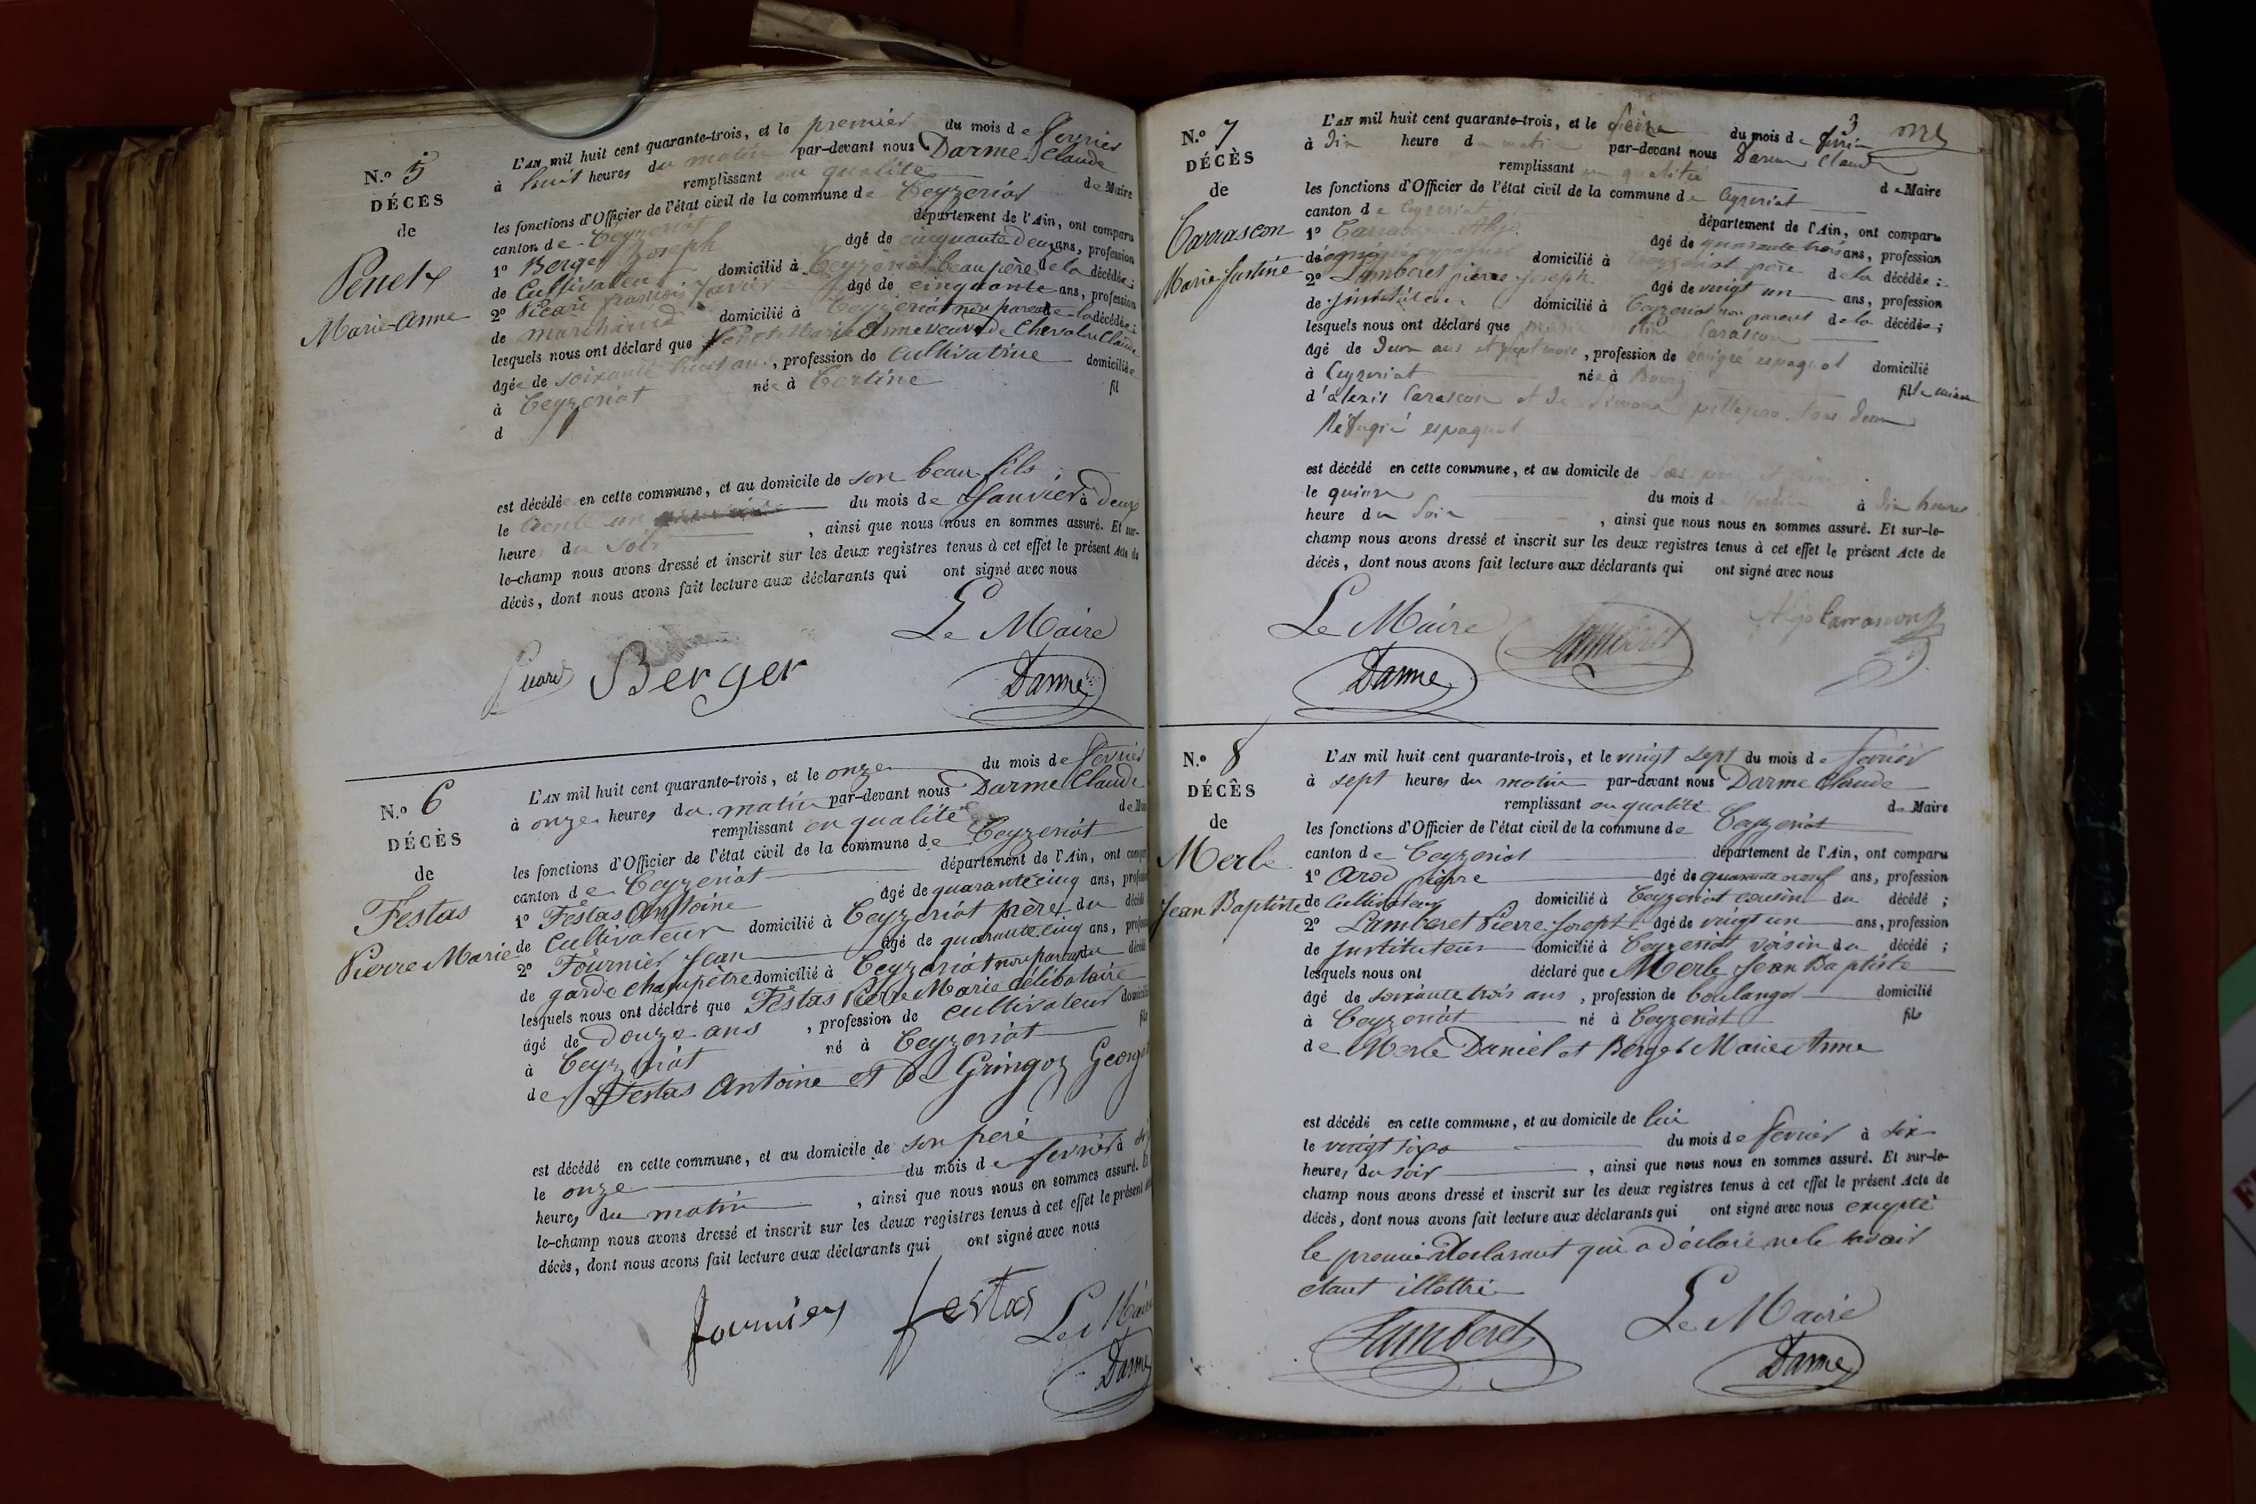 N.º 5
DÉCÈS
de
Penet
Marie-Anne
L'AN mil huit cent quarante-trois, et le premier du mois de fevrier
à huit heures du matin par-devant nous Darme Claude
remplissant en qualité de Maire
les fonctions d'Officier de l'état civil de la commune de Ceyzeriat
canton de Ceyzeriat département de l'Ain, ont comparu
1º Berger Joseph âgé de cinquante deux ans, profession
de Cultivateur domicilié à Ceyzeriat beau père de la décédée;
2º Picard françois Xavier âgé de cinquante ans, profession
de marchand domicilié à Ceyzeriat non parent de la décédée;
lesquels nous ont déclaré que Penet Marie Anne veuve de Chevalier Claude
âgée de soixante huit ans, profession de cultivatrice domiciliée
à Ceyzeriat née à Certine fil
d
est décédé en cette commune, et au domicile de son beau fils
le trente un du mois de Janvier à deux
heures du soir, ainsi que nous nous en sommes assuré. Et sur-
le-champ nous avons dressé et inscrit sur les deux registres tenus à cet effet le présent Acte de
décès, dont nous avons fait lecture aux déclarants qui ont signé avec nous
Le Maire
Picard Berger Darme
N.º 6
DÉCÈS
de
Festas
Pierre Marie
L'AN mil huit cent quarante-trois, et le onze du mois de fevrier
à onze heures du matin par-devant nous Darme Claude
remplissant en qualité de
les fonctions d'Officier de l'état civil de la commune de Ceyzeriat
canton de Ceyzeriat département de l'Ain, ont
1º Festas Antoine âgé de quarante cinq ans,
de Cultivateur domicilié à Ceyzeriat père du
2º Fournier Jean âgé de quarante cinq ans,
de garde champêtre domicilié à Ceyzeriat non parent du
lesquels nous ont déclaré que Festas Pierre Marie célibataire
âgé de douze ans, profession de cultivateur domicilié
à Ceyzeriat né à Ceyzeriat fils
de Festas Antoine et de Gringoz
est décédé en cette commune, et au domicile de son père
le onze du mois de fevrier à
heures du matin, ainsi que nous nous en sommes assuré.
le-champ nous avons dressé et inscrit sur les deux registres tenus à cet effet le présent
décès, dont nous avons fait lecture aux déclarants qui ont signé avec nous
fournier festas Le Maire
Darme
3
N.º 7
DÉCÈS
de
Carrascon
Marie Justine
L'AN mil huit cent quarante-trois, et le seize du mois de fevrier
à dix heure du matin par-devant nous Darme Claude
remplissant en qualité de Maire
les fonctions d'Officier de l'état civil de la commune de Ceyzeriat
canton de Ceyzeriat département de l'Ain, ont comparu
1º âgé de quarante trois ans, profession
de domicilié à Ceyzeriat père de la décédée;
2º Lamberet pierre Joseph âgé de vingt un ans, profession
de Instituteur domicilié à Ceyzeriat non parent de la décédée;
lesquels nous ont déclaré que Carascon
âgé de deux ans et sept mois, profession de espagnol domicilié
à Ceyzeriat née à Bourg fille
d'alexis Carascon et de tous deux
Réfugié espagnol
est décédé en cette commune, et au domicile de
le quinze du mois d à dix heures
heure du soir, ainsi que nous nous en sommes assuré. Et sur-le-
champ nous avons dressé et inscrit sur les deux registres tenus à cet effet le présent Acte de
décès, dont nous avons fait lecture aux déclarants qui ont signé avec nous
Le Maire Lamberet Carrascon
Darme
N.º 8
DÉCÈS
de
Merle
Jean Baptiste
L'AN mil huit cent quarante-trois, et le vingt sept du mois de fevrier
à sept heures du matin par-devant nous Darme Claude
remplissant en qualité de Maire
les fonctions d'Officier de l'état civil de la commune de Ceyzeriat
canton de Ceyzeriat département de l'Ain, ont comparu
1º Arod pierre âgé de quarante neuf ans, profession
de Cultivateur domicilié à Ceyzeriat cousin du décédé;
2º Lamberet Pierre Joseph âgé de vingt un ans, profession
de Instituteur domicilié à Ceyzeriat voisin du décédé;
lesquels nous ont déclaré que Merle Jean Baptiste
âgé de soixante trois ans, profession de boulanger domicilié
à Ceyzeriat né à Ceyzeriat fils
de Merle Daniel et Berger Marie Anne
est décédé en cette commune, et au domicile de lui
le vingt six du mois de fevrier à six
heures du soir, ainsi que nous nous en sommes assuré. Et sur-le-
champ nous avons dressé et inscrit sur les deux registres tenus à cet effet le présent Acte de
décès, dont nous avons fait lecture aux déclarants qui ont signé avec nous excepté
le premier declarant qui a déclaré ne le savoir
etant illettré
Le Maire
Lamberet Darme